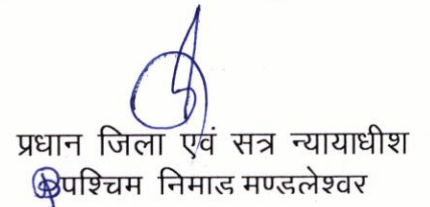 प्रधान जिला एवं सत्र न्यायाधीश
पश्चिम निमाड मण्डलेश्वर